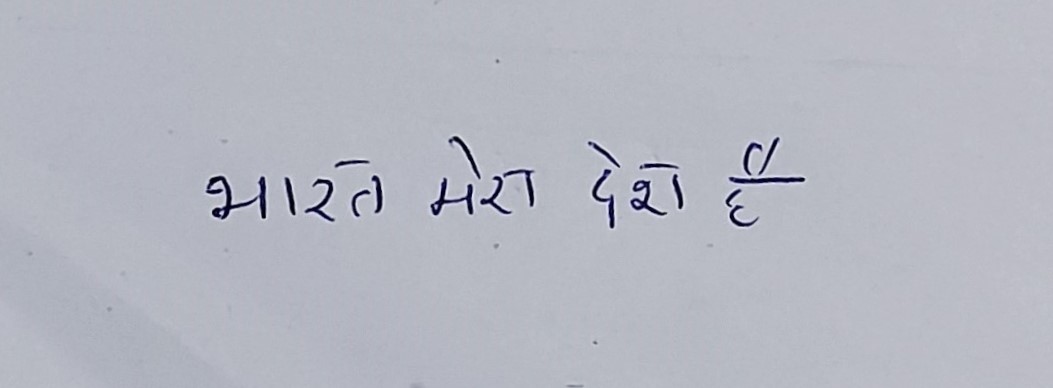 भारत मेरा देश है